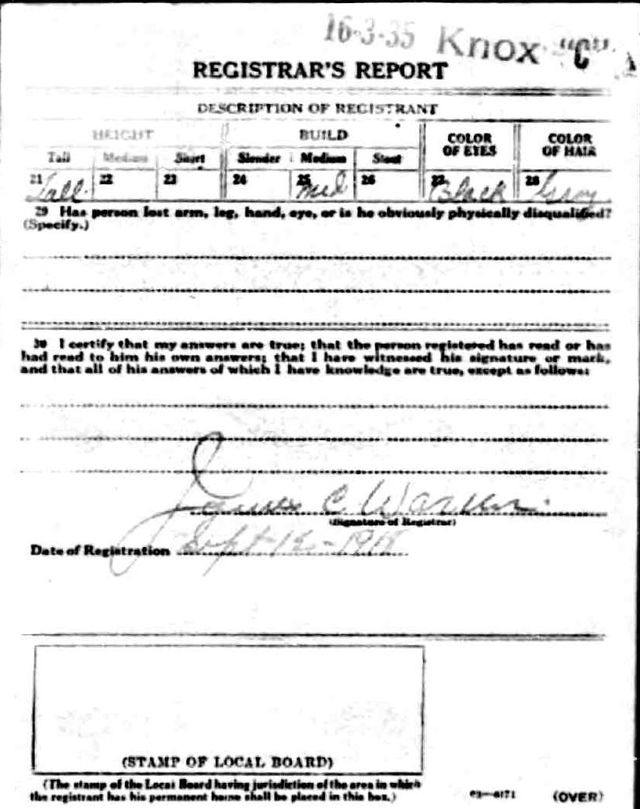 16-3-35 Knox "C" A
REGISTRAR'S REPORT
DESCRIPTION OF REGISTRANT
HEIGHT BUILD COLOR OF EYES COLOR OF HAIR
Tall Medium Short Slender Medium Stout
21 Tall 22 23 24 25 Med 26 27 Black 28 Grey
29 Has person lost arm, leg, hand, eye, or is he obviously physically disqualified?
(Specify.)
30 I certify that my answers are true; that the person registered has read or has
had read to him his own answers; that I have witnessed his signature or mark,
and that all of his answers of which I have knowledge are true, except as follows:
James C Warren
(Signature of Registrar)
Date of Registration Sept 12-1918
(STAMP OF LOCAL BOARD)
(The stamp of the Local Board having jurisdiction of the area in which
the registrant has his permanent home shall be placed in this box.)
03-6171 (OVER)